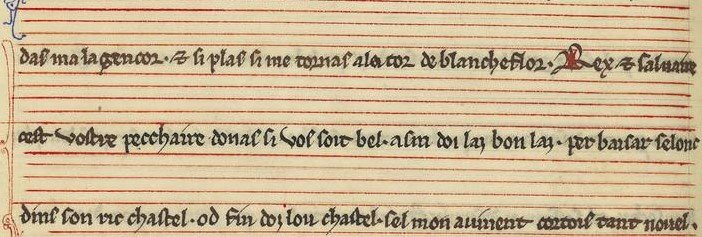 das ma la gencor. ⁊ si plas si me tornas a la cor de blancheflor. Rex ⁊ saluaire
cest vostre pecchaire donas si vos soit bel. a fin doi laz bon laz. per baisar selonc
dins son ric chastel. od fin doz lou chastel. sel mon auinent cortois tant nouel.